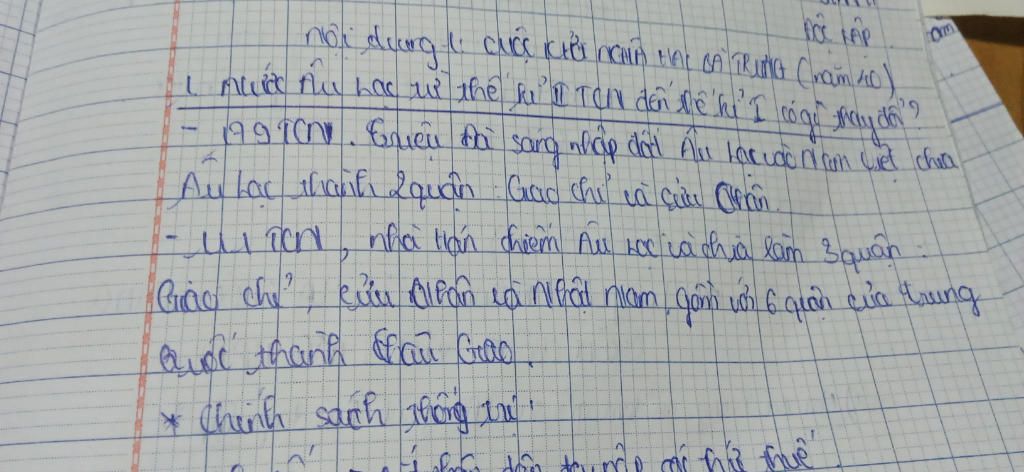 ĐỘC LẬP
Nội dung 1: cuộc khởi nghĩa HAI BÀ TRƯNG (năm 40)
1. Nước Âu Lạc từ thế kỉ II TCN đến thế kỉ I có gì thay đổi?
- 179 TCN. Triệu Đà sáng nhập đất Âu Lạc vào Nam Việt chia
Âu Lạc thành 2 quận: Giao chỉ và cửu Chân.
- 111 TCN, nhà Hán chiếm Âu Lạc và chia làm 3 quận:
Giao chỉ, cửu chân và Nhật Nam, gồm với 6 quận của trung
Quốc thành Châu Giao.
* Chính sách thống trị:
thuế